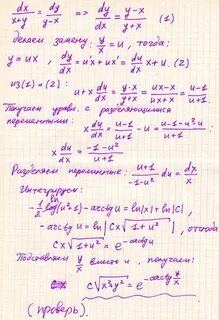 dx/(x+y) = dy/(y-x) => dy/dx = (y-x)/(y+x) (1)
делаем замену: y/x = u, тогда:
y = ux, dy/dx = u'x + ux' = du/dx x + u. (2)
из (1) и (2): u + x du/dx = (y-x)/(y+x) = (ux-x)/(ux+x) = (u-1)/(u+1)
Получаем уравн. с разделяющимися
переменными: x du/dx = (u-1)/(u+1) - u = (u-1-u²-u)/(u+1)
x du/dx = (-1-u²)/(u+1)
Разделяем переменные: (u+1)/(-1-u²) du = dx/x
Интегрируем:
-1/2 log(u²+1) - arctgu = ln|x| + ln|C|,
-arctgu = ln|Cx√(1+u²)|, откуда
Cx√(1+u²) = e^(-arctgu)
Подставляем y/x вместо u, получаем:
C√(x²+y²) = e^(-arctg y/x)
(проверь).